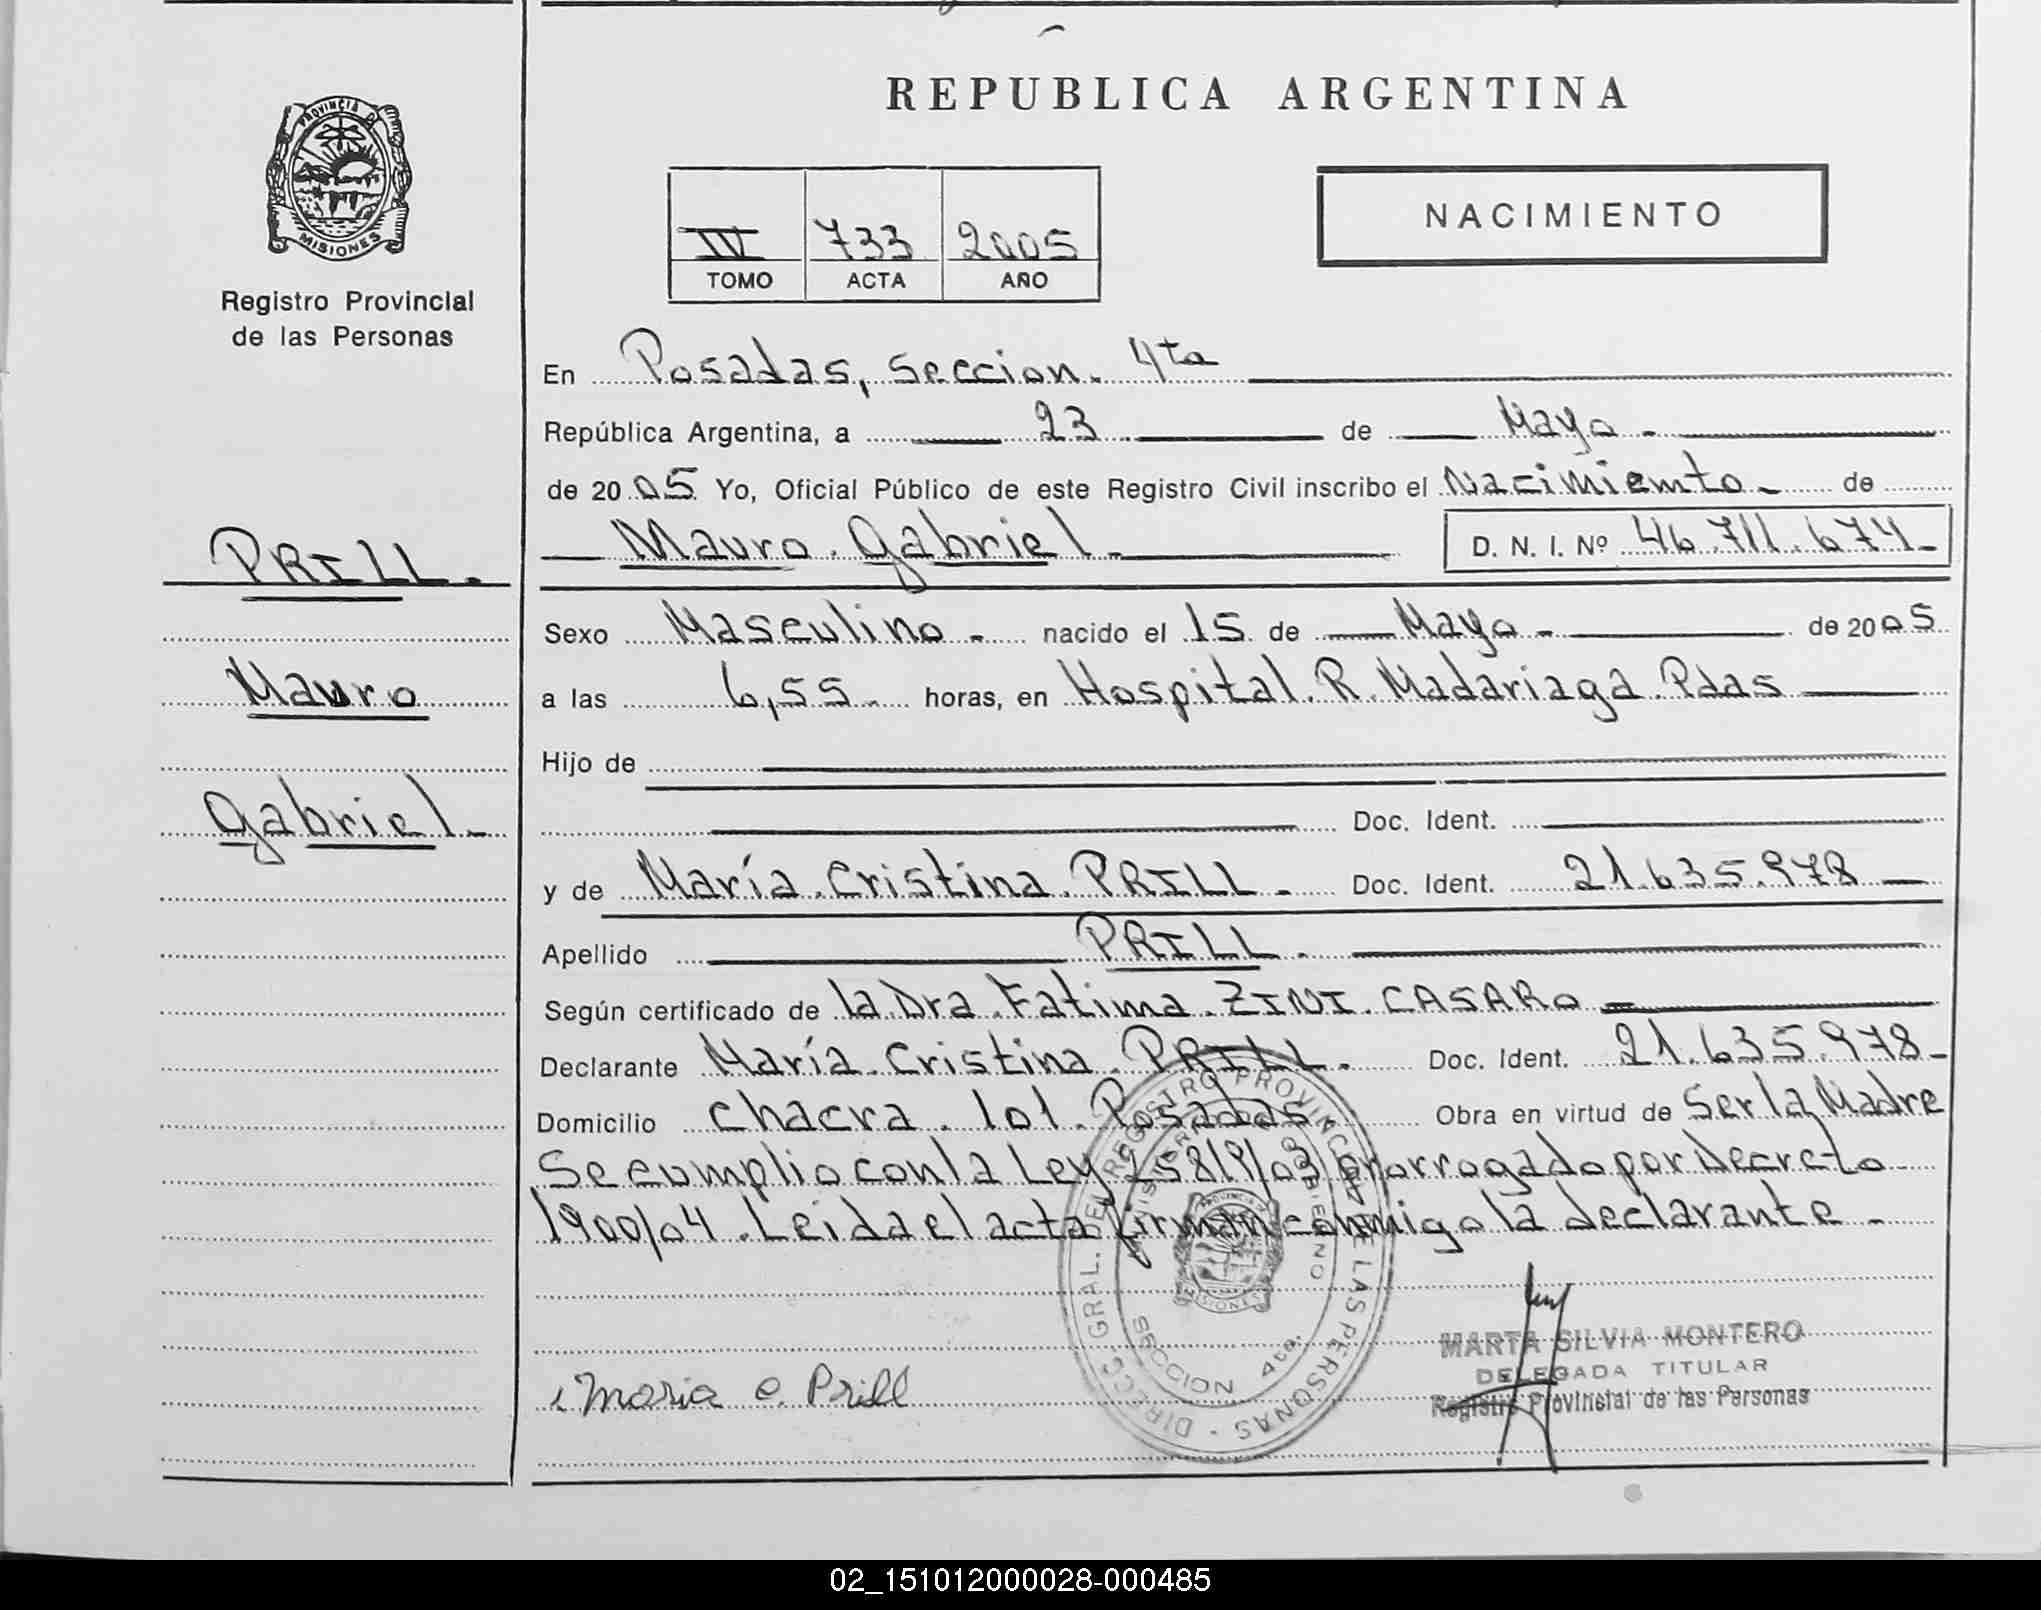 REPUBLICA ARGENTINA
PROVINCIA DE
MISIONES
Registro Provincial
de las Personas
IV 733 2005
TOMO ACTA AÑO
NACIMIENTO
En Posadas, Seccion. 4ta
República Argentina, a 23 de Mayo -
de 2005 Yo, Oficial Público de este Registro Civil inscribo el Nacimiento - de
Mauro Gabriel - D. N. I. Nº 46.711.674 -
PRILL.
Mauro
Gabriel -
Sexo Masculino - nacido el 15 de Mayo - de 2005
a las 6,55 - horas, en Hospital R. Madariaga Pdas
Hijo de
Doc. Ident.
y de María Cristina PRILL - Doc. Ident. 21.635.978
Apellido PRILL -
Según certificado de la Dra. Fatima ZINI CASARO
Declarante María Cristina PRILL - Doc. Ident. 21.635.978 -
Domicilio chacra 101 Posadas Obra en virtud de Ser la Madre
Se cumplio con la Ley 25819/03 prorrogado por Decreto
1900/04. Leida el acta firman conmigo la declarante -
DIRECC. GRAL. DEL REGISTRO PROVINCIAL DE LAS PERSONAS
MINISTERIO DE GOBIERNO
MISIONES
SECCION 4ta.
Maria C. Prill
MARTA SILVIA MONTERO
DELEGADA TITULAR
Registro Provincial de las Personas
02_151012000028-000485